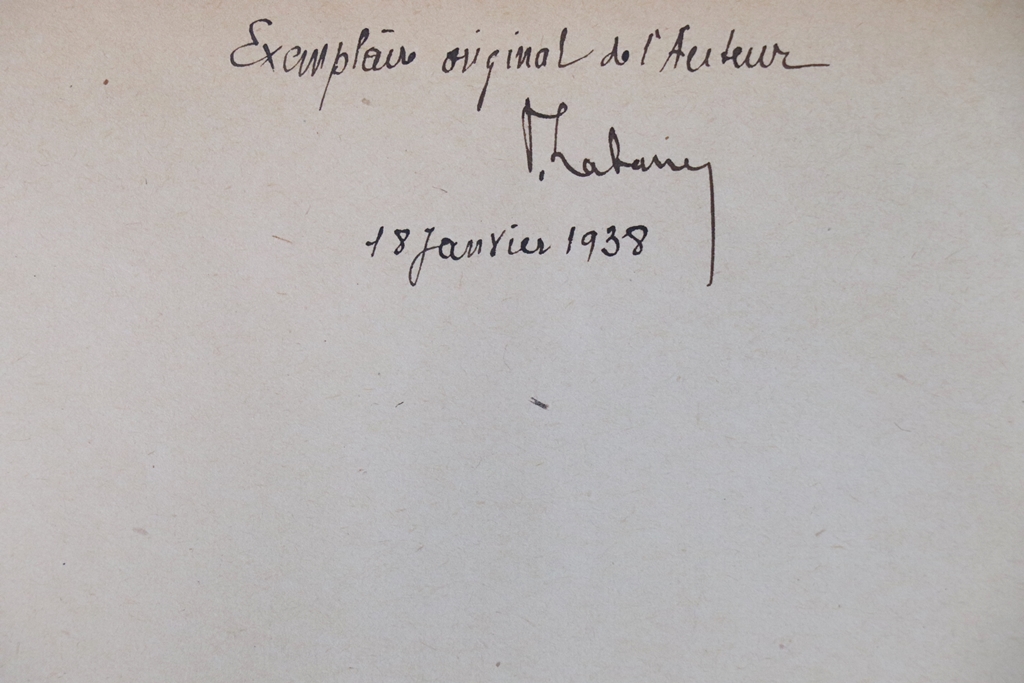 Exemplaire original de l'Auteur
18 Janvier 1938